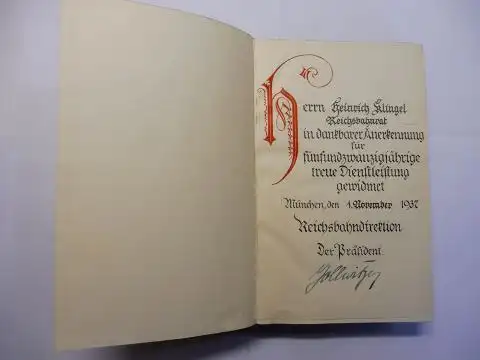 Herrn Heinrich Klingel
Reichsbahnrat
in dankbarer Anerkennung
für
fünfundzwanzigjährige
treue Dienstleistung
gewidmet
München, den 1. November 1937
Reichsbahndirektion
Der Präsident